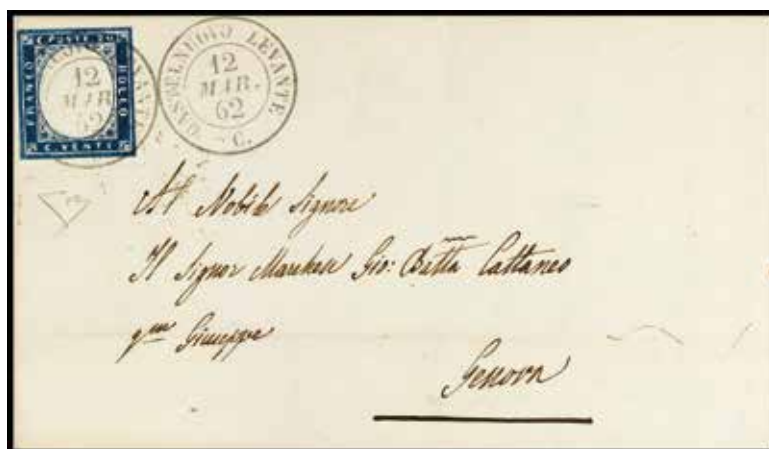 C. POSTE 20
FRANCO
BOLLO
C. VENTI
12
MAR
62
CASTELNUOVO LEVANTE
12
MAR.
62
C.
Al Nobile Signore
Il Signor Marchese Gio: Batta Cattaneo
qm Giuseppe
Genova